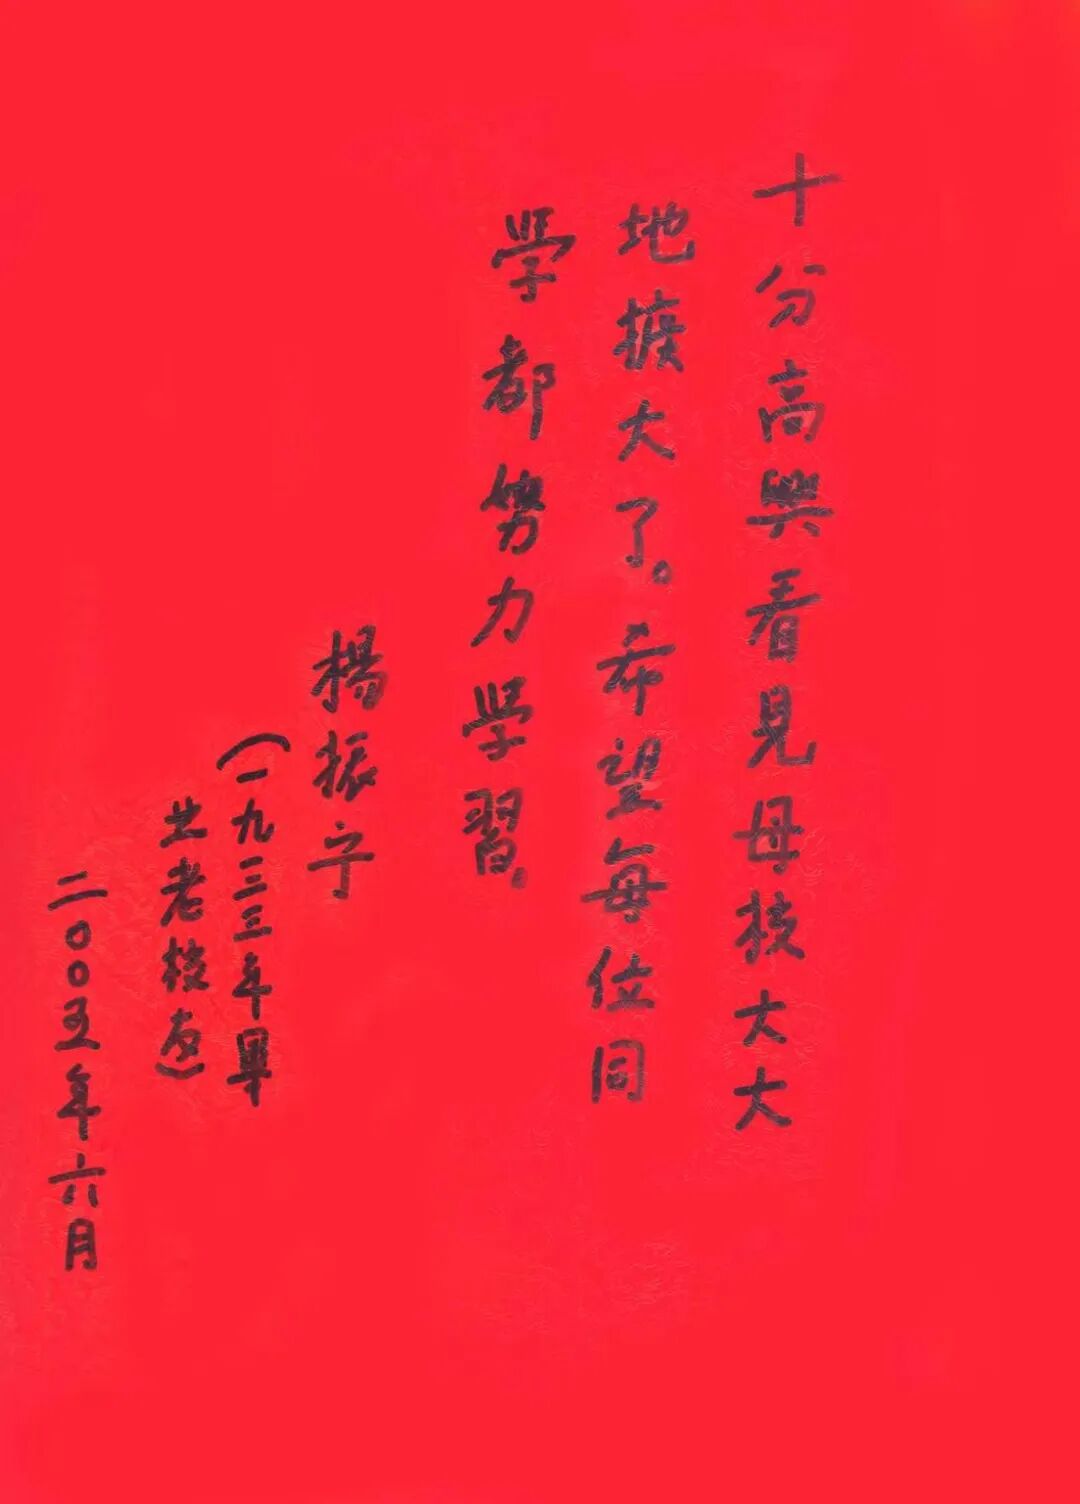 十分高興看見母校大大
地擴大了。希望每位同
学都努力学習。
楊振宁
(一九三三年畢
业老校友)
二〇〇五年六月